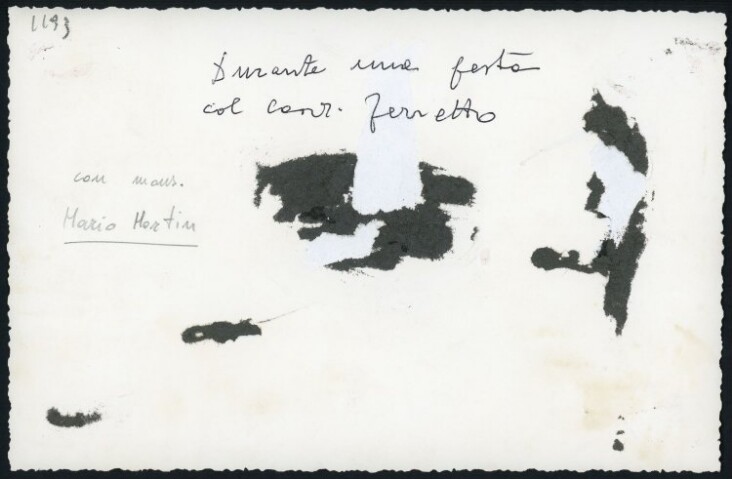 1193
Durante una festa
col canr. Ferretto
con mons.
Mario Martin